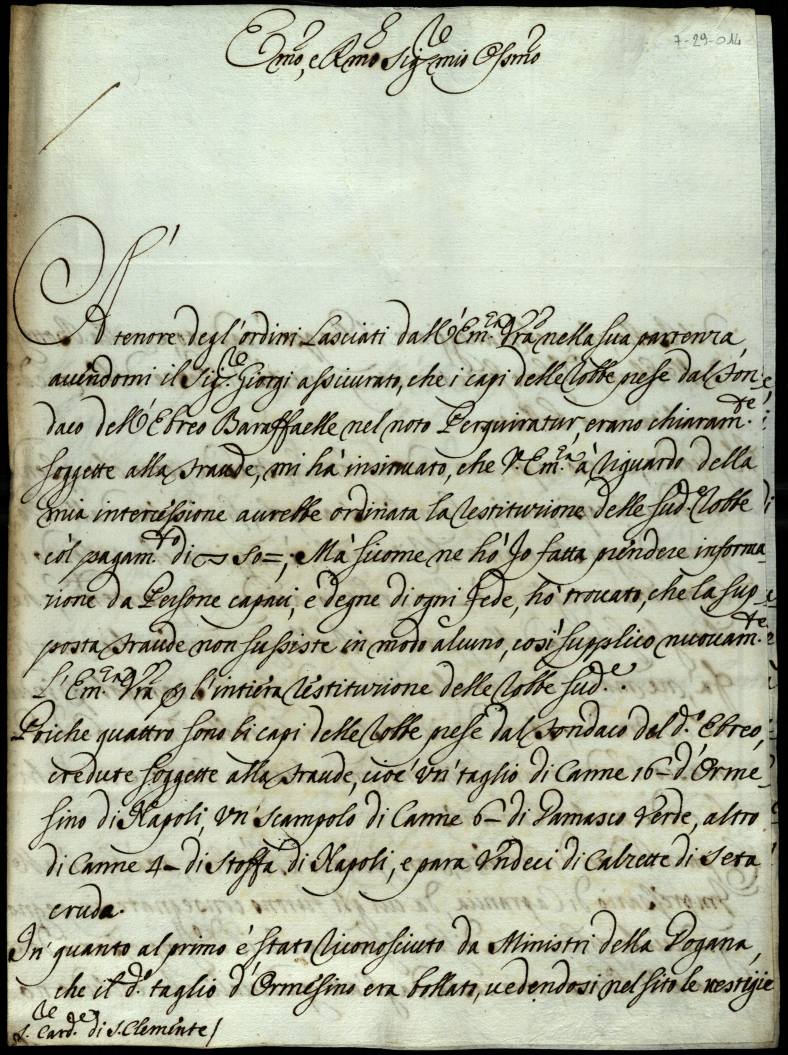 7-29-014
Emo, e Rmo Sigre mio Ossmo
A' tenore degl'ordini lasciati dall'Em.za Vra nella sua partenza,
avendomi il Sigre Giorgi assicurato, che i capi delle robbe prese dal Fon-
daco dell'Ebreo Baraffaelle nel noto Perquiratur, erano chiaram.te
soggette alla fraude, mi hà insinuato, che V. Em.za à riguardo della
mia intercessione avrebbe ordinata la restituzione delle sud.e robbe
còl pagam.to di 50=; Mà siccome ne hò Io fatta prendere informa-
zione da Persone capaci, e degne di ogni fede, hò trovato, che la sup-
posta fraude non sussiste in modo alcuno, così supplico nuovam.te
l'Em.za Vra p l'intiera restituzione delle robbe sud.e.
Poiche quattro sono li capi delle robbe prese dal Fondaco del d.o Ebreo,
credute soggette alla fraude, cioè un' taglio di Canne 16- d'Orme-
sino di Napoli, un' scampolo di Canne 6- di Damasco verde, altro
di Canne 4- di stoffa di Napoli, e para undeci di Calzette di seta
cruda.
In' quanto al primo è stato riconosciuto da Ministri della Dogana,
che il d.o taglio d'Ormesino era bollato, vedendosi nel sito le vestigie
S. Card.le di S. Clemente/